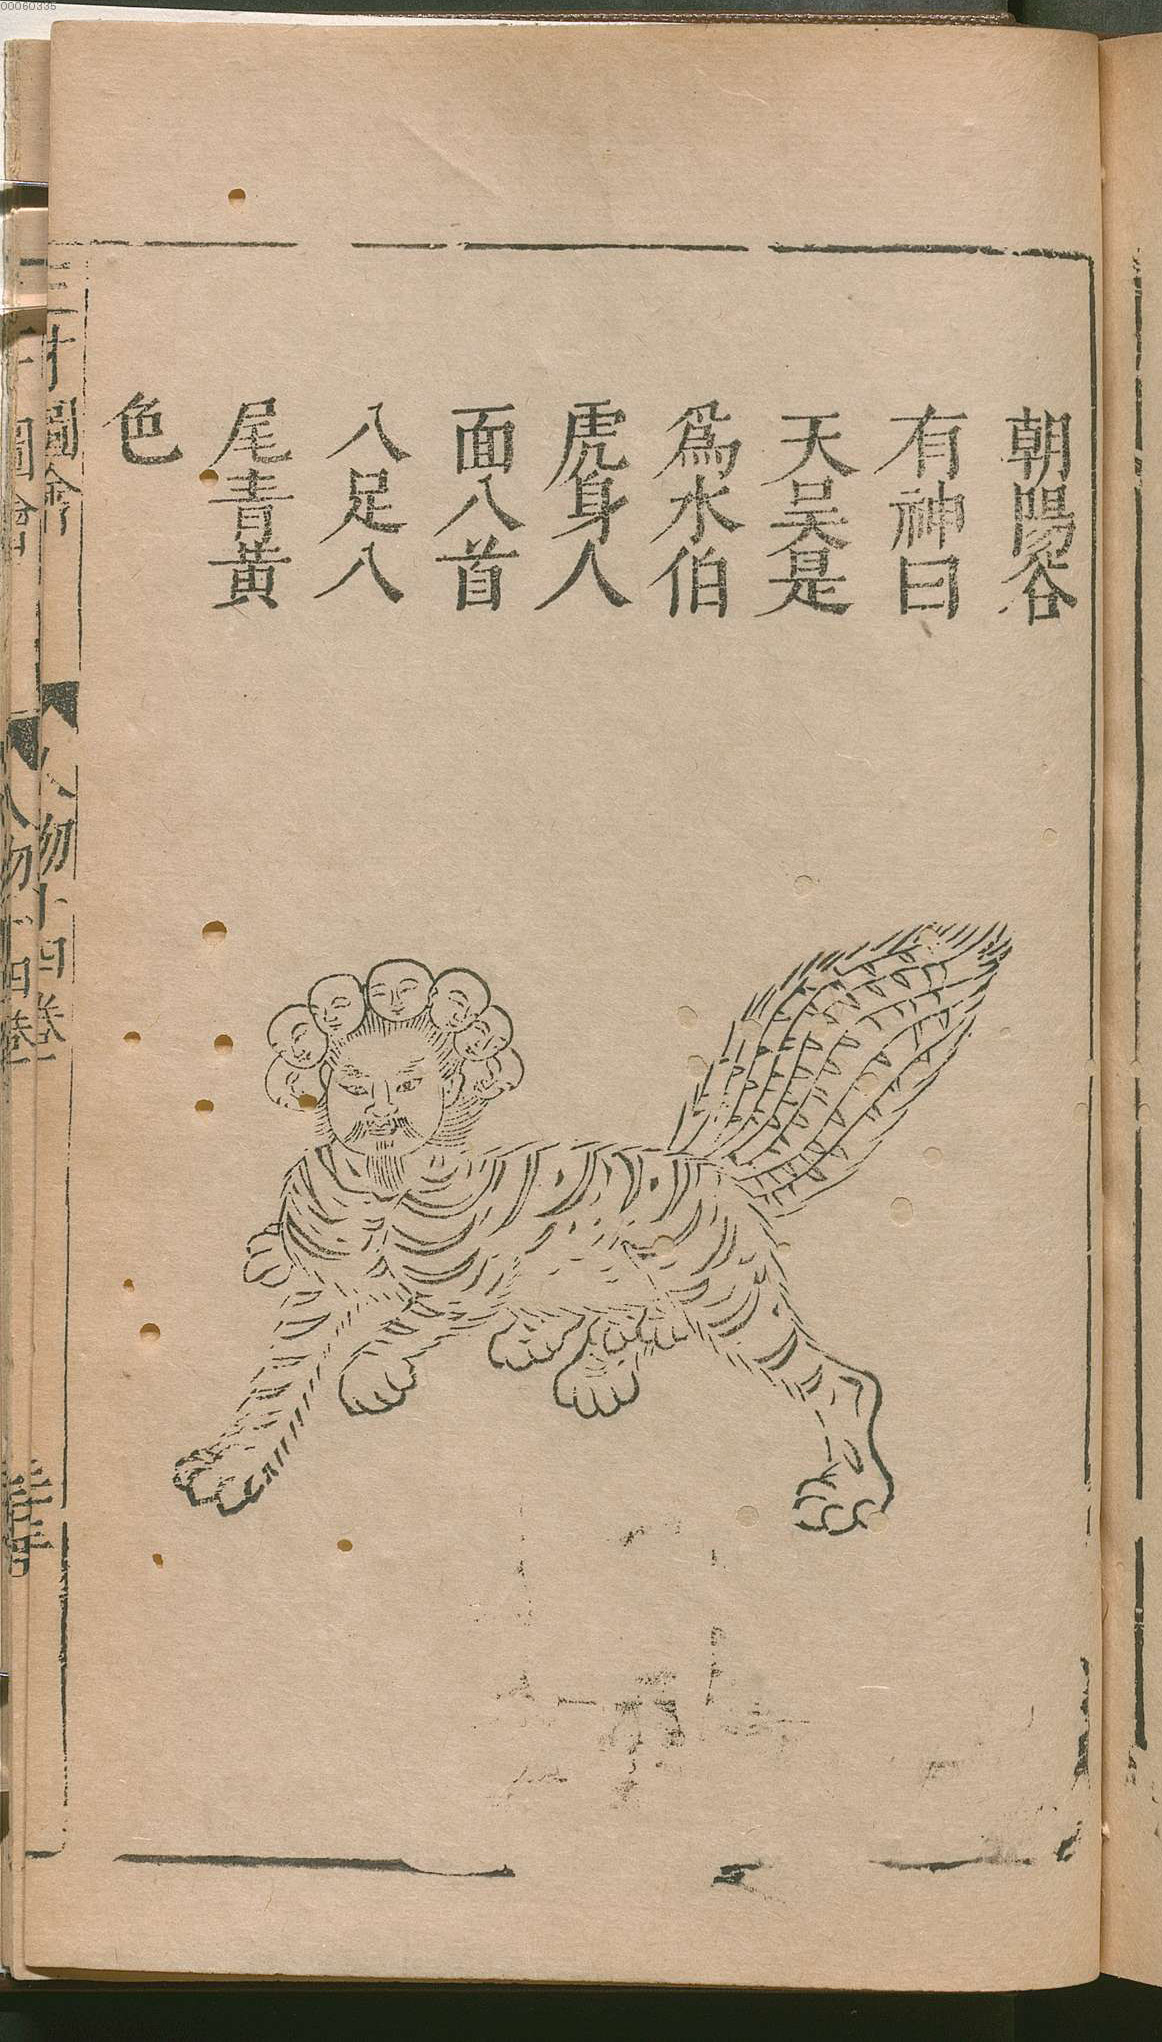 朝陽谷
有神曰
天吴是
爲水伯
虎身人
面八首
八足八
尾青黃
色
三才圖會
人物十四卷
00060335